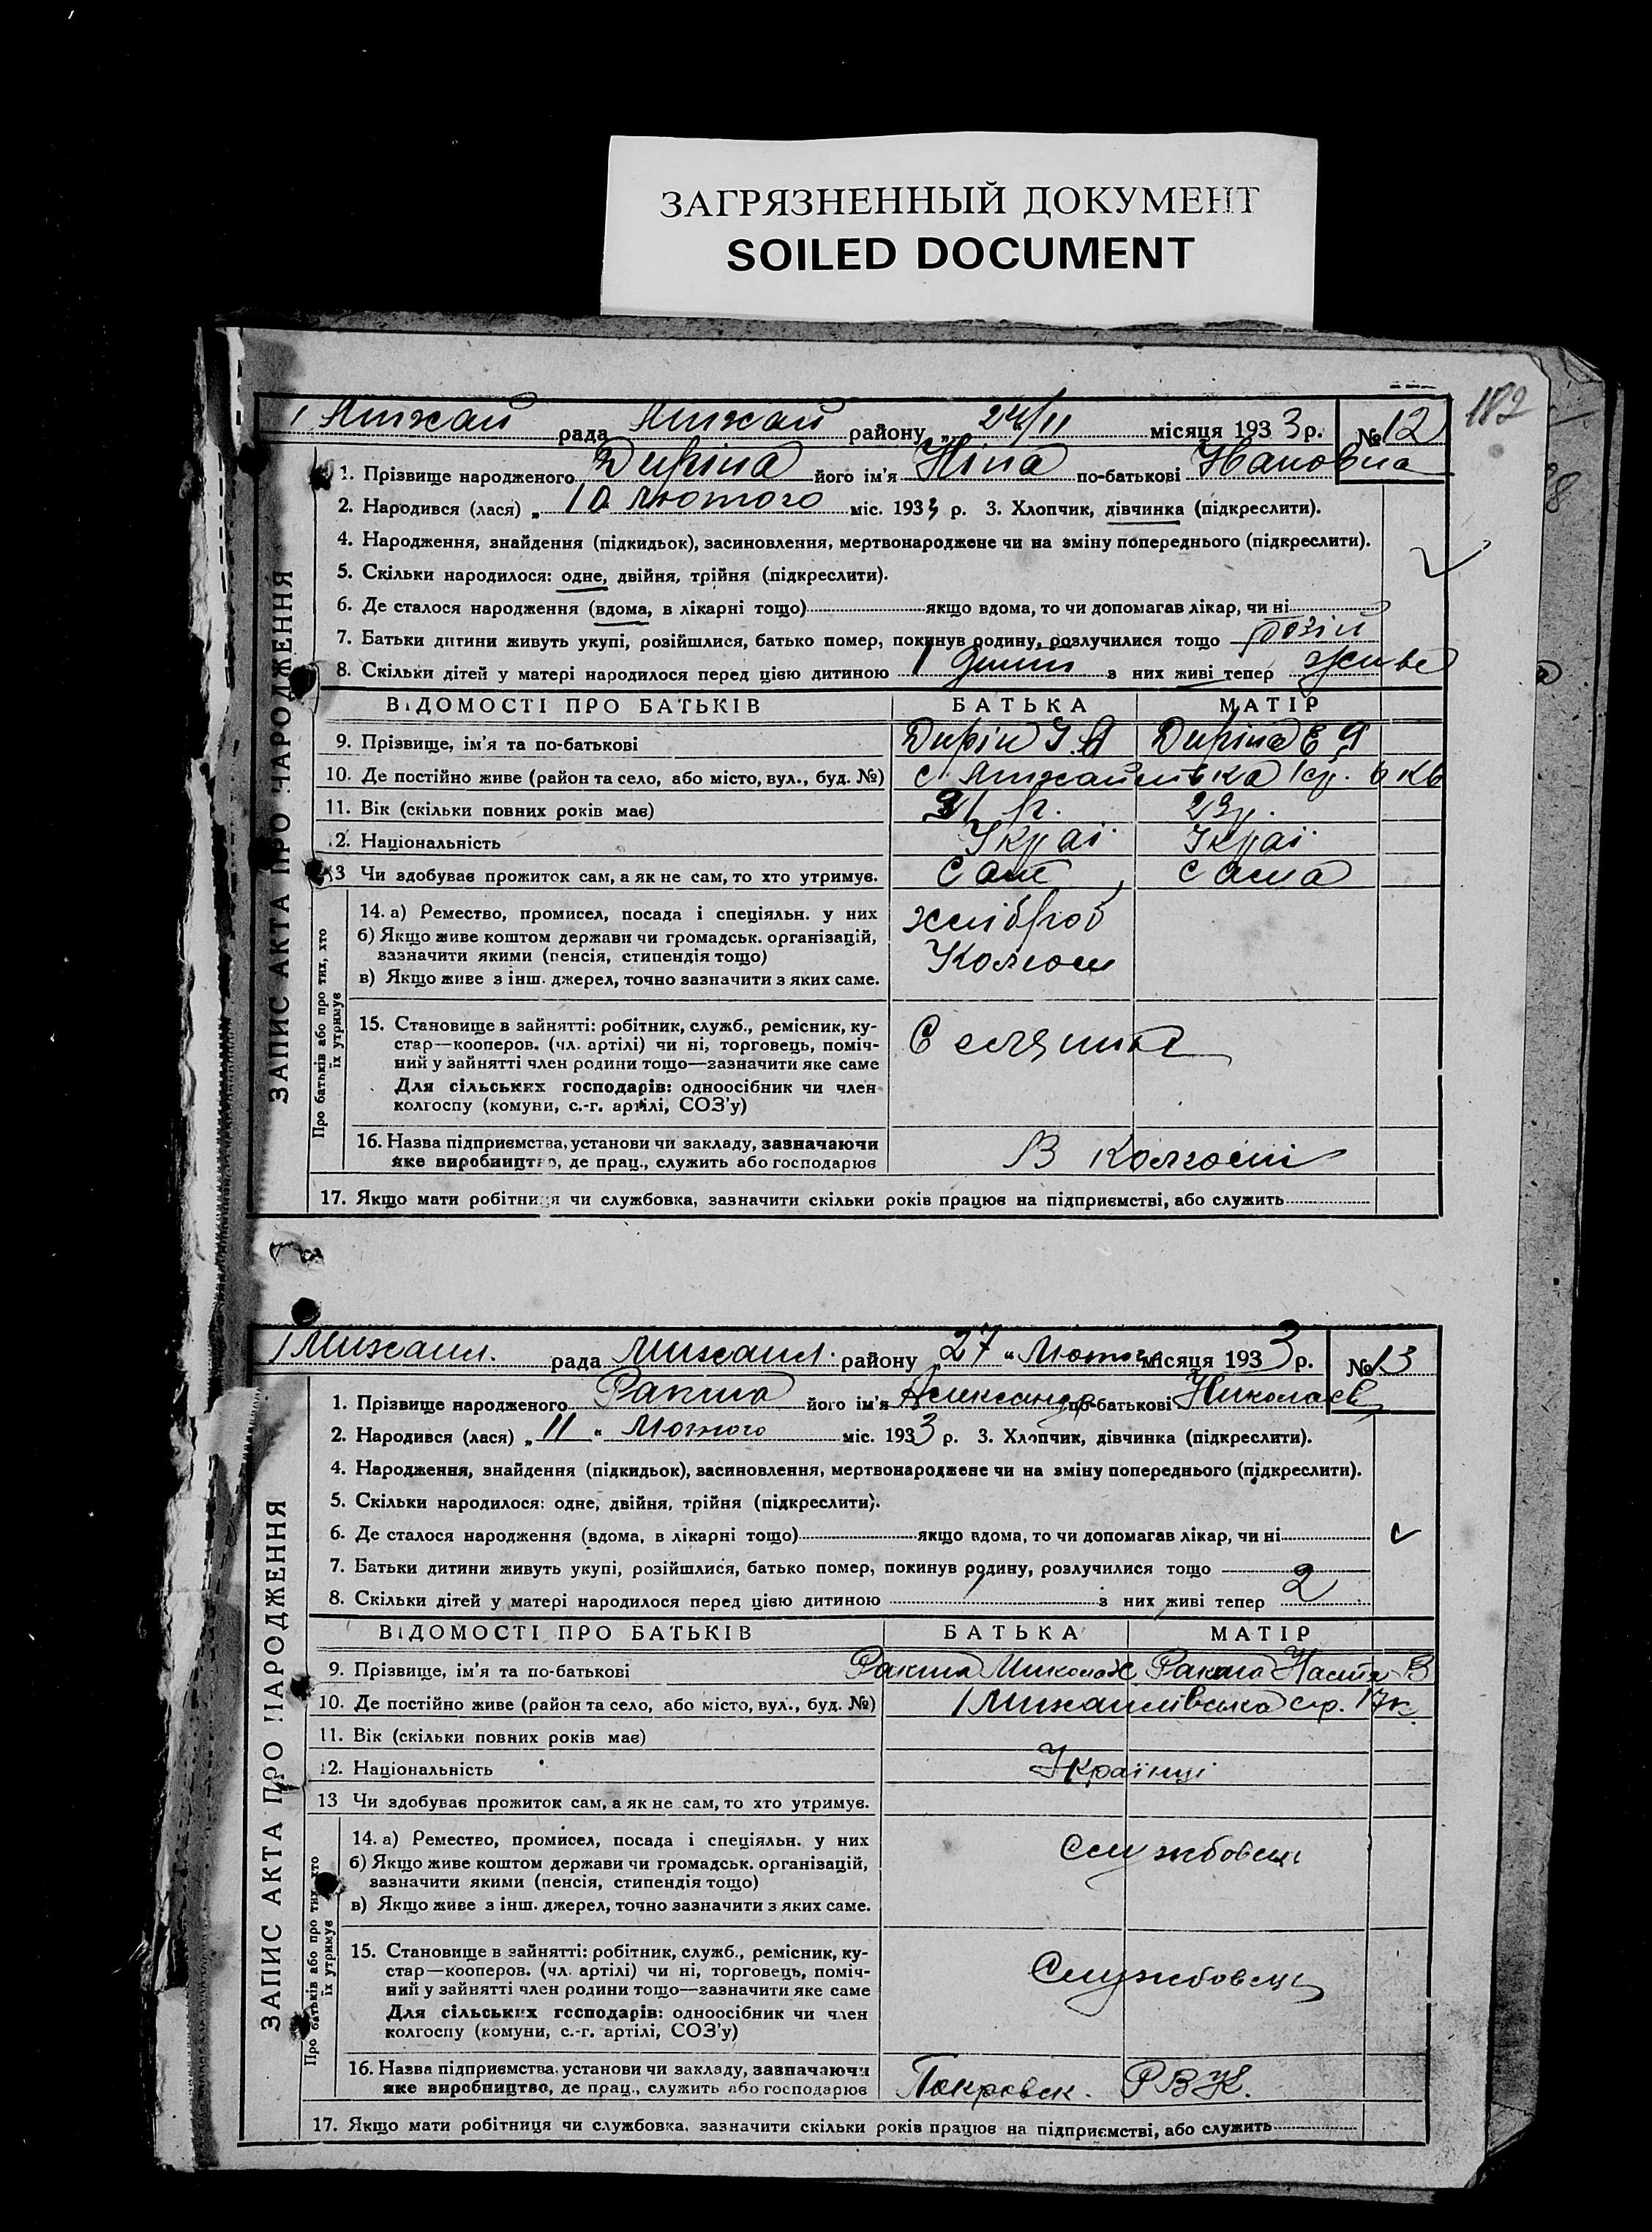 ЗАГРЯЗНЕННЫЙ ДОКУМЕНТ
SOILED DOCUMENT
182
рада району 24/II місяця 1933 р. № 12
1. Прізвище народженого Диріна його ім'я Ніна по-батькові Івановна
2. Народився (лася) „ 10 Лютого міс. 1933 р. 3. Хлопчик, дівчинка (підкреслити).
4. Народження, знайдення (підкидьок), засиновлення, мертвонароджене чи на зміну попереднього (підкреслити).
5. Скільки народилося: одне, двійня, трійня (підкреслити).
6. Де сталося народження (вдома, в лікарні тощо) якщо вдома, то чи допомагав лікар, чи ні
7. Батьки дитини живуть укупі, розійшлися, батько помер, покинув родину, розлучилися тощо
8. Скільки дітей у матері народилося перед цією дитиною 1 з них живі тепер живе
ВІДОМОСТІ ПРО БАТЬКІВ БАТЬКА МАТІР
9. Прізвище, ім'я та по-батькові Дирін І. А Диріна Е Я
10. Де постійно живе (район та село, або місто, вул., буд. №) с. Михайлівка
11. Вік (скільки повних років має) 31 р. 23 р.
12. Національність Украї Украї
13 Чи здобуває прожиток сам, а як не сам, то хто утримує. Сам сама
14. а) Ремество, промисел, посада і спеціяльн. у них хлібороб
б) Якщо живе коштом держави чи громадськ. організацій,
зазначити якими (пенсія, стипендія тощо)
в) Якщо живе з інш. джерел, точно зазначити з яких саме.
15. Становище в зайнятті: робітник, служб., ремісник, ку-
стар—кооперов. (чл. артілі) чи ні, торговець, поміч-
ний у зайнятті член родини тощо—зазначити яке саме
Для сільських господарів: одноосібник чи член
колгоспу (комуни, с.-г. артілі, СОЗ'у)
16. Назва підприємства, установи чи закладу, зазначаючи
яке виробництво, де прац., служить або господарює В колгоспі
17. Якщо мати робітниця чи службовка, зазначити скільки років працює на підприємстві, або служить
ЗАПИС АКТА ПРО НАРОДЖЕННЯ
Про батьків або про тих, хто
їх утримує
1 Михаил. рада Михаил. району „27“ Лютого місяця 1933 р. № 13
1. Прізвище народженого Ракша його ім'я Александр по-батькові Николаєв
2. Народився (лася) „ 11 “ Лютого міс. 1933 р. 3. Хлопчик, дівчинка (підкреслити).
4. Народження, знайдення (підкидьок), засиновлення, мертвонароджене чи на зміну попереднього (підкреслити).
5. Скільки народилося: одне, двійня, трійня (підкреслити).
6. Де сталося народження (вдома, в лікарні тощо) якщо вдома, то чи допомагав лікар, чи ні
7. Батьки дитини живуть укупі, розійшлися, батько помер, покинув родину, розлучилися тощо
8. Скільки дітей у матері народилося перед цією дитиною з них живі тепер 2
ВІДОМОСТІ ПРО БАТЬКІВ БАТЬКА МАТІР
9. Прізвище, ім'я та по-батькові Ракша Микола Ж Ракша Настя В
10. Де постійно живе (район та село, або місто, вул., буд. №) 1 Михайлівська
11. Вік (скільки повних років має)
12. Національність Українці
13 Чи здобуває прожиток сам, а як не сам, то хто утримує.
14. а) Ремество, промисел, посада і спеціяльн. у них Службовець
б) Якщо живе коштом держави чи громадськ. організацій,
зазначити якими (пенсія, стипендія тощо)
в) Якщо живе з інш. джерел, точно зазначити з яких саме.
15. Становище в зайнятті: робітник, служб., ремісник, ку- Службовець
стар—кооперов. (чл. артілі) чи ні, торговець, поміч-
ний у зайнятті член родини тощо—зазначити яке саме
Для сільських господарів: одноосібник чи член
колгоспу (комуни, с.-г. артілі, СОЗ'у)
16. Назва підприємства, установи чи закладу, зазначаючи
яке виробництво, де прац., служить або господарює Покровск. РВК.
17. Якщо мати робітниця чи службовка, зазначити скільки років працює на підприємстві, або служить
ЗАПИС АКТА ПРО НАРОДЖЕННЯ
Про батьків або про тих, хто
їх утримує